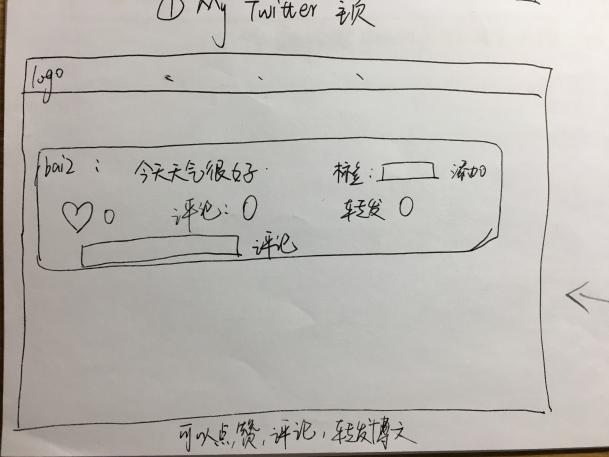 ① My Twitter 主页
logo
bai2 : 今天天气很好. 标签: 添加
0 评论: 0 转发 0
评论
可以点赞, 评论, 转发博文